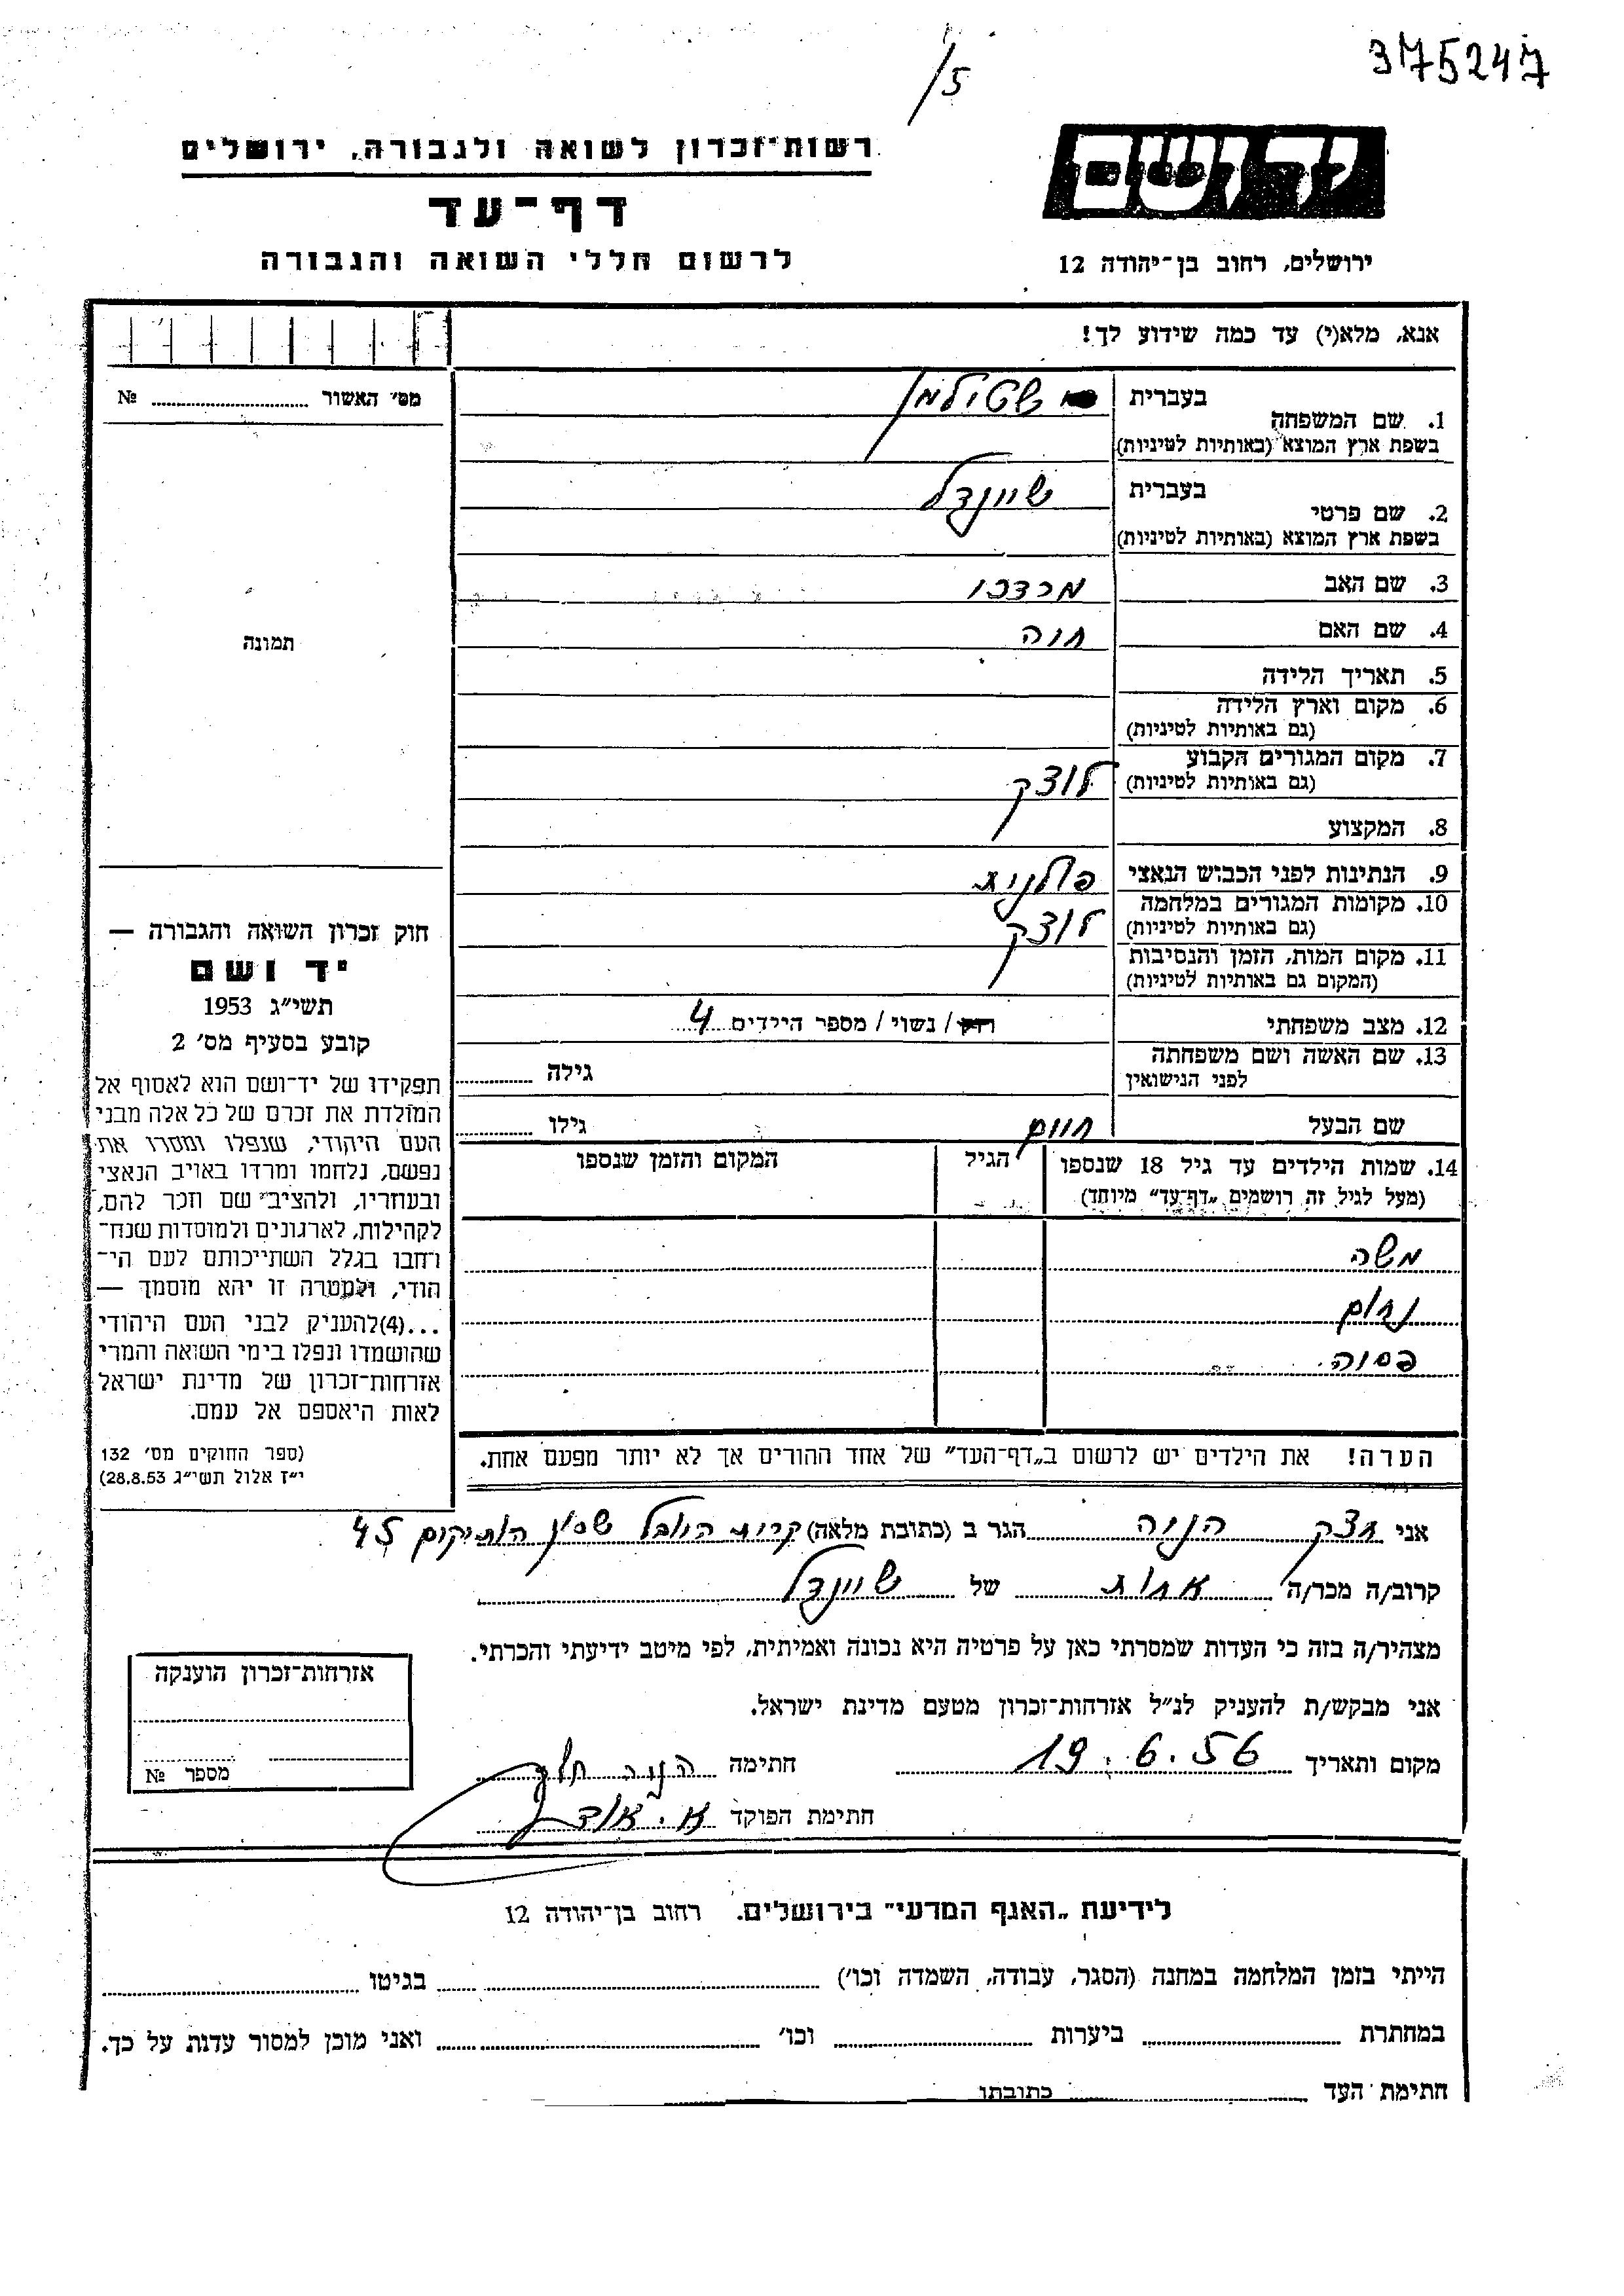 375247
/5
יד ושם
ירושלים, רחוב בן־יהודה 12
רשות־זכרון לשואה ולגבורה, ירושלים
דף־עד
לרשום חללי השואה והגבורה
אנא, מלא(י) עד כמה שידוע לך!
1. שם המשפחה
בעברית שטילמן
בשפת ארץ המוצא (באותיות לטיניות)
2. שם פרטי
בעברית שיינדל
בשפת ארץ המוצא (באותיות לטיניות)
3. שם האב מרדכי
4. שם האם חוה
5. תאריך הלידה
6. מקום וארץ הלידה
(גם באותיות לטיניות)
7. מקום המגורים הקבוע לוצק
(גם באותיות לטיניות)
8. המקצוע
9. הנתינות לפני הכבוש הנאצי פולנית
10. מקומות המגורים במלחמה לוצק
(גם באותיות לטיניות)
11. מקום המות, הזמן והנסיבות
(המקום גם באותיות לטיניות)
12. מצב משפחתי רוק / נשוי / מספר הילדים 4
13. שם האשה ושם משפחתה גילה
לפני הנישואין
שם הבעל חיים גילו
14. שמות הילדים עד גיל 18 שנספו הגיל המקום והזמן שנספו
(מעל לגיל זה רושמים „דף־עד” מיוחד)
משה
נחום
פסיה
הערה! את הילדים יש לרשום ב„דף־העד” של אחד ההורים אך לא יותר מפעם אחת.
מס׳ האשור № 
תמונה
חוק זכרון השואה והגבורה —
יד ושם
תשי״ג 1953
קובע בסעיף מס׳ 2
תפקידו של יד־ושם הוא לאסוף אל
המולדת את זכרם של כל אלה מבני
העם היהודי, שנפלו ומסרו את
נפשם, נלחמו ומרדו באויב הנאצי
ובעוזריו, ולהציב שם וזכר להם,
לקהילות, לארגונים ולמוסדות שנח־
רחבו בגלל השתייכותם לעם הי־
הודי, ולמטרה זו יהא מוסמך —
...(4)להעניק לבני העם היהודי
שהושמדו ונפלו בימי השואה והמרי
אזרחות־זכרון של מדינת ישראל
לאות היאספם אל עמם.
(ספר החוקים מס׳ 132
י״ז אלול תשי״ג 28.8.53)
אני חצק הניה הגר ב (כתובת מלאה) קרית היובל שכון הותיקים 45
קרוב/ה מכר/ה אחות של שיינדל
מצהיר/ה בזה כי העדות שמסרתי כאן על פרטיה היא נכונה ואמיתית, לפי מיטב ידיעתי והכרתי.
אני מבקש/ת להעניק לנ״ל אזרחות־זכרון מטעם מדינת ישראל.
מקום ותאריך 19.6.56 חתימה הניה
חתימת הפוקד א.
אזרחות־זכרון הוענקה
מספר №
לידיעת „האגף המדעי” בירושלים. רחוב בן־יהודה 12
הייתי בזמן המלחמה במחנה (הסגר, עבודה, השמדה וכו׳) בגיטו
במחתרת ביערות וכו׳ ואני מוכן למסור עדות על כך.
חתימת העד כתובתו